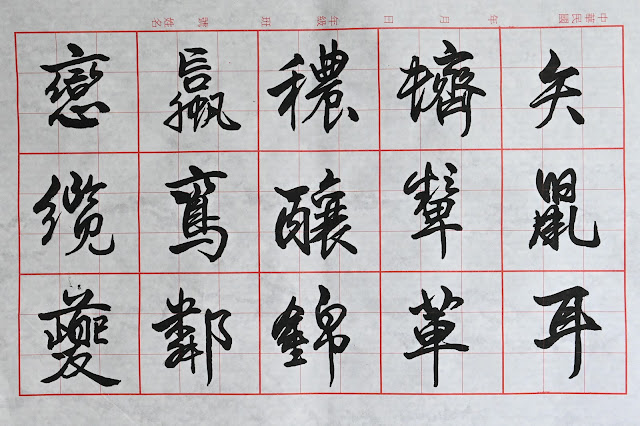 中華民國 年 月 日 年級 班 號 姓名
矢鼠耳
革
穠釀錦
贏鄰
戀纜夔